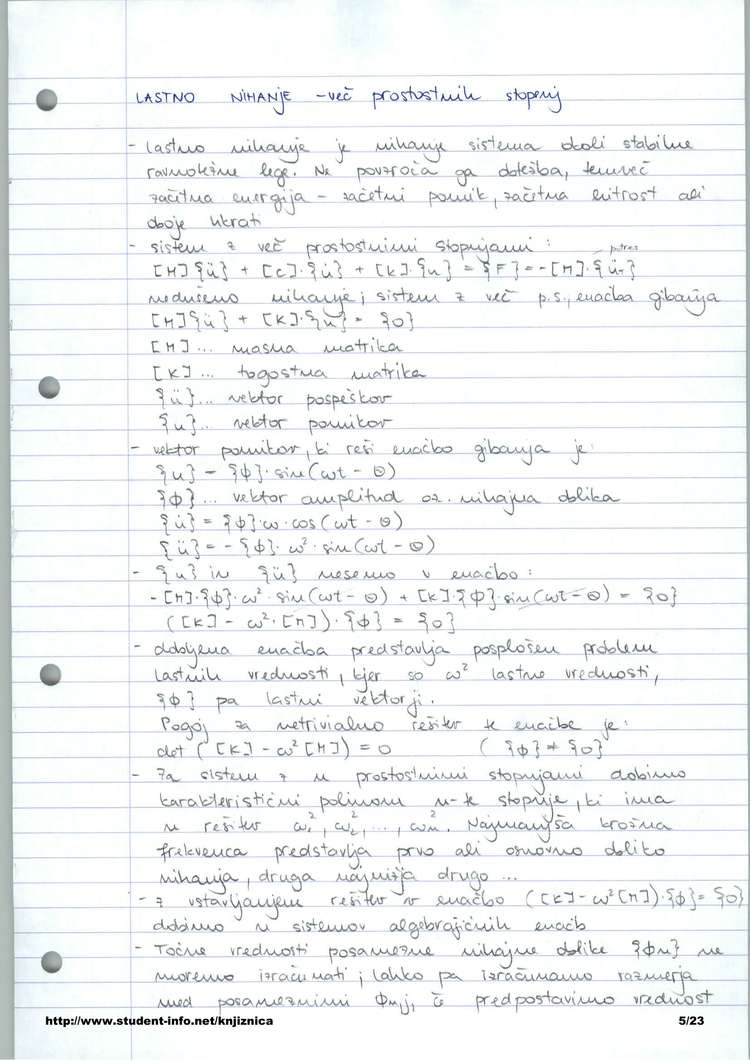 LASTNO NIHANJE - več prostostnih stopenj
- lastno nihanje je nihanje sistema okoli stabilne
ravnotežne lege. Ne povzroča ga obtežba, temveč
začetna energija - začetni pomik, začetna hitrost ali
oboje hkrati
- sistem z več prostostnimi stopnjami :
potres
[M]{ü} + [C]·{u̇} + [K]·{u} = {F} = -[M]·{üг}
nedušeno nihanje; sistem z več p.s., enačba gibanja
[M]{ü} + [K]·{u} = {0}
[M]... masna matrika
[K]... togostna matrika
{ü}... vektor pospeškov
{u}... vektor pomikov
- vektor pomikov, ki reši enačbo gibanja je:
{u} = {ϕ}·sin(ωt - Θ)
{ϕ}... vektor amplitud oz. nihajna oblika
{u̇} = {ϕ}·ω·cos(ωt - Θ)
{ü} = -{ϕ}·ω²·sin(ωt - Θ)
- {u} in {ü} nesemo v enačbo :
-[M]·{ϕ}·ω²·sin(ωt - Θ) + [K]·{ϕ}·sin(ωt - Θ) = {0}
([K] - ω²·[M])·{ϕ} = {0}
- dobljena enačba predstavlja posplošen problem
lastnih vrednosti, kjer so ω² lastne vrednosti,
{ϕ} pa lastni vektorji.
Pogoj za netrivialno rešitev te enačbe je:
det ([K] - ω²[M]) = 0 ( {ϕ} ≠ {0} )
- Za sistem z n prostostnimi stopnjami dobimo
karakteristični polinom n-te stopnje, ki ima
n rešitev ω₁², ω₂², ..., ωn². Najmanjša krožna
frekvenca predstavlja prvo ali osnovno obliko
nihanja, druga najnižja drugo ...
- z vstavljanjem rešitev v enačbo ([K] - ω²[M])·{ϕ} = {0}
dobimo n sistemov algebrajičnih enačb
- Točne vrednosti posamezne nihajne oblike {ϕn} ne
moremo izračunati; lahko pa izračunamo razmerja
med posameznimi ϕnj, če predpostavimo vrednost
http://www.student-info.net/knjiznica 5/23